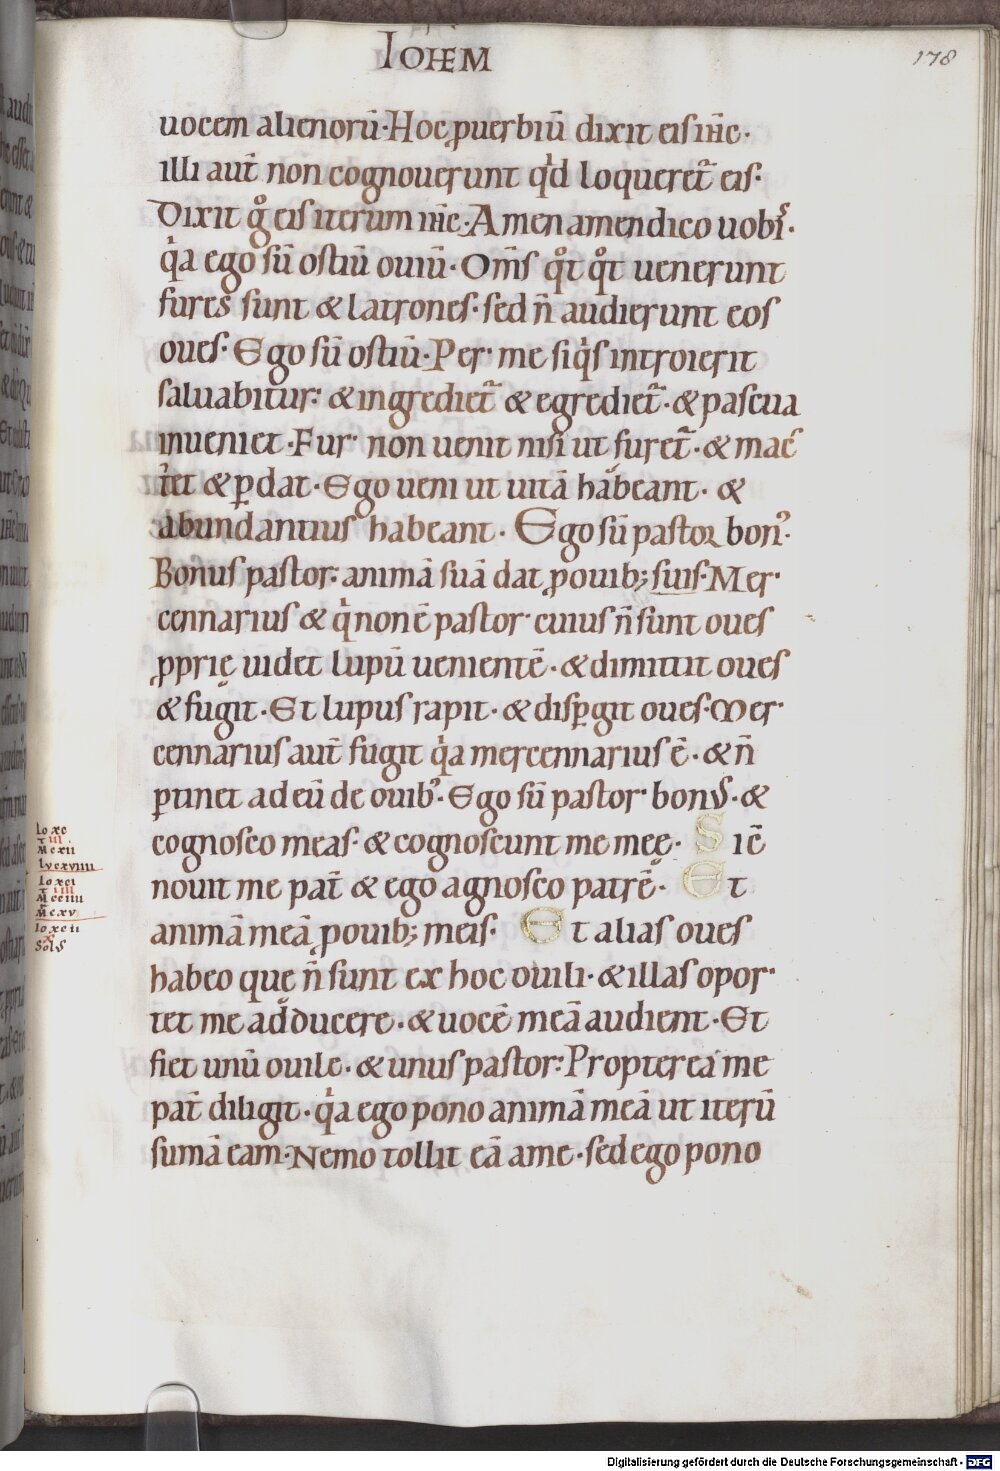 IOHEM
178
uocem alienorū· Hoc ꝓuerbiū dixit eis ih̅c·
illi aut̅ non cognouerunt qd̅ loqueret̅ eis·
Dixit gͦ eis iterum ih̅c· Amen amen dico uobiſ·
qͥa ego ſū oſtiū ouiū· Om̅s qͦt qͦt uenerunt
fures ſunt & latrones· ſed n̅ audierunt eoſ
oueſ· Ego ſū oſtiū· Per me ſiqͥs introierit
ſaluabitur: & ingrediet̅ & egrediet̅· & paſcua
inueniet· Fur non uenit niſi ut furet̅· & mac̅
tet & ꝑdat· Ego ueni ut uitā habeant· &
abundantiuſ habeant· Ego ſū paſtor bonꝰ·
Bonuſ paſtor: animā ſuā dat ꝓ ouib; ſuiſ· Mer
cennariuſ & qͥ non ē paſtor· cuius n̅ ſunt oueſ
ꝓprię uidet lupū uenientē· & dimittit oueſ
& fugit· Et lupuſ rapit· & diſꝑgit oueſ· Mer
cennariuſ aut̅ fugit qͥa mercennariuſ ē· & n̅
ꝑtinet ad eū de ouibꝰ· Ego ſū paſtor bonuſ· &
cognoſco meaſ· & cognoſcunt me meę· Sic̅
nouit me pat̅ & ego agnoſco patrē· Et
animā meā pono ꝓ ouib; meis· Et alias oueſ
habeo que n̅ ſunt ex hoc ouili· & illaſ opor
tet me adducere· & uocē meā audient· Et
fiet unū ouile· & unuſ paſtor: Propterea me
pat̅ diligit· qͥa ego pono animā meā ut iterū
ſumā eam· Nemo tollit eā a me· ſed ego pono
Digitalisierung gefördert durch die Deutsche Forschungsgemeinschaft - DFG